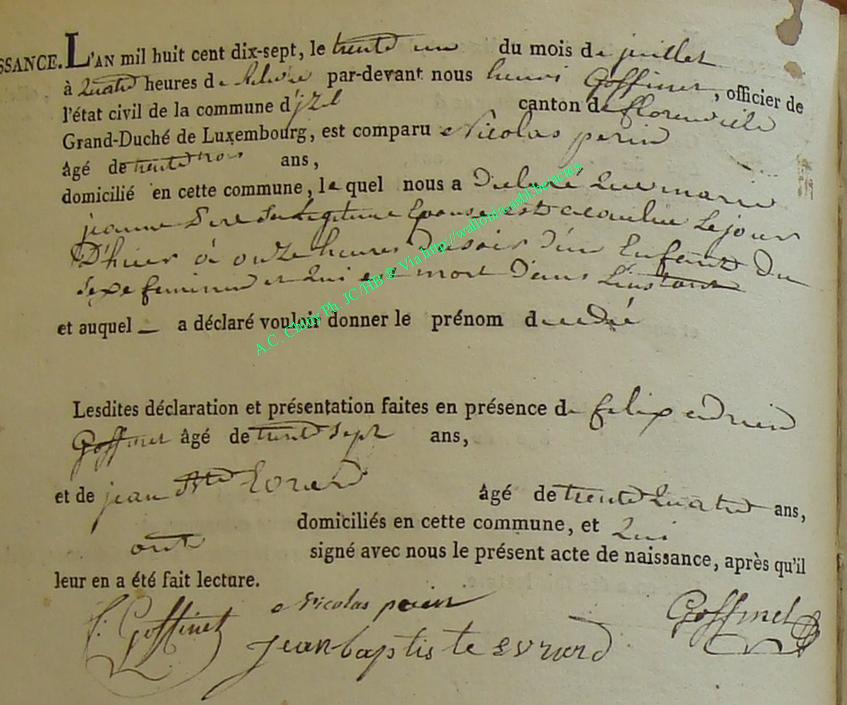 SSANCE. L'AN mil huit cent dix-sept, le trente un du mois de juillet
à quatre heures de par-devant nous henri Goffinet, officier de
l'état civil de la commune d'jzel canton de florenville
Grand-Duché de Luxembourg, est comparu Nicolas perin
âgé de trente trois ans,
domicilié en cette commune, le quel nous a Declaré que marie
jeanne Sa Legitime Epouse est acouchee Le jour
D'hier à onze heures du soir d'un Enfant Du
sexe feminin et qui est mort dans L'instant
et auquel — a déclaré vouloir donner le prénom d
Lesdites déclaration et présentation faites en présence de felix adrien
Goffinet âgé de trente sept ans,
et de jean Bte Evrard âgé de trente quatre ans,
domiciliés en cette commune, et qui
ont signé avec nous le présent acte de naissance, après qu'il
leur en a été fait lecture.
f: Goffinet Nicolas perin Goffinet
jean baptiste evrard
A.C. Chiny Ph. JC HB & Via http://wallonia.asbl.be